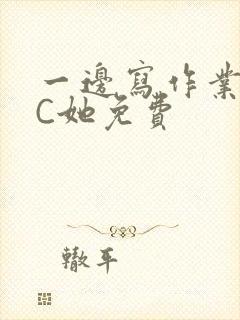 一邊寫作業
C她免費
轍平